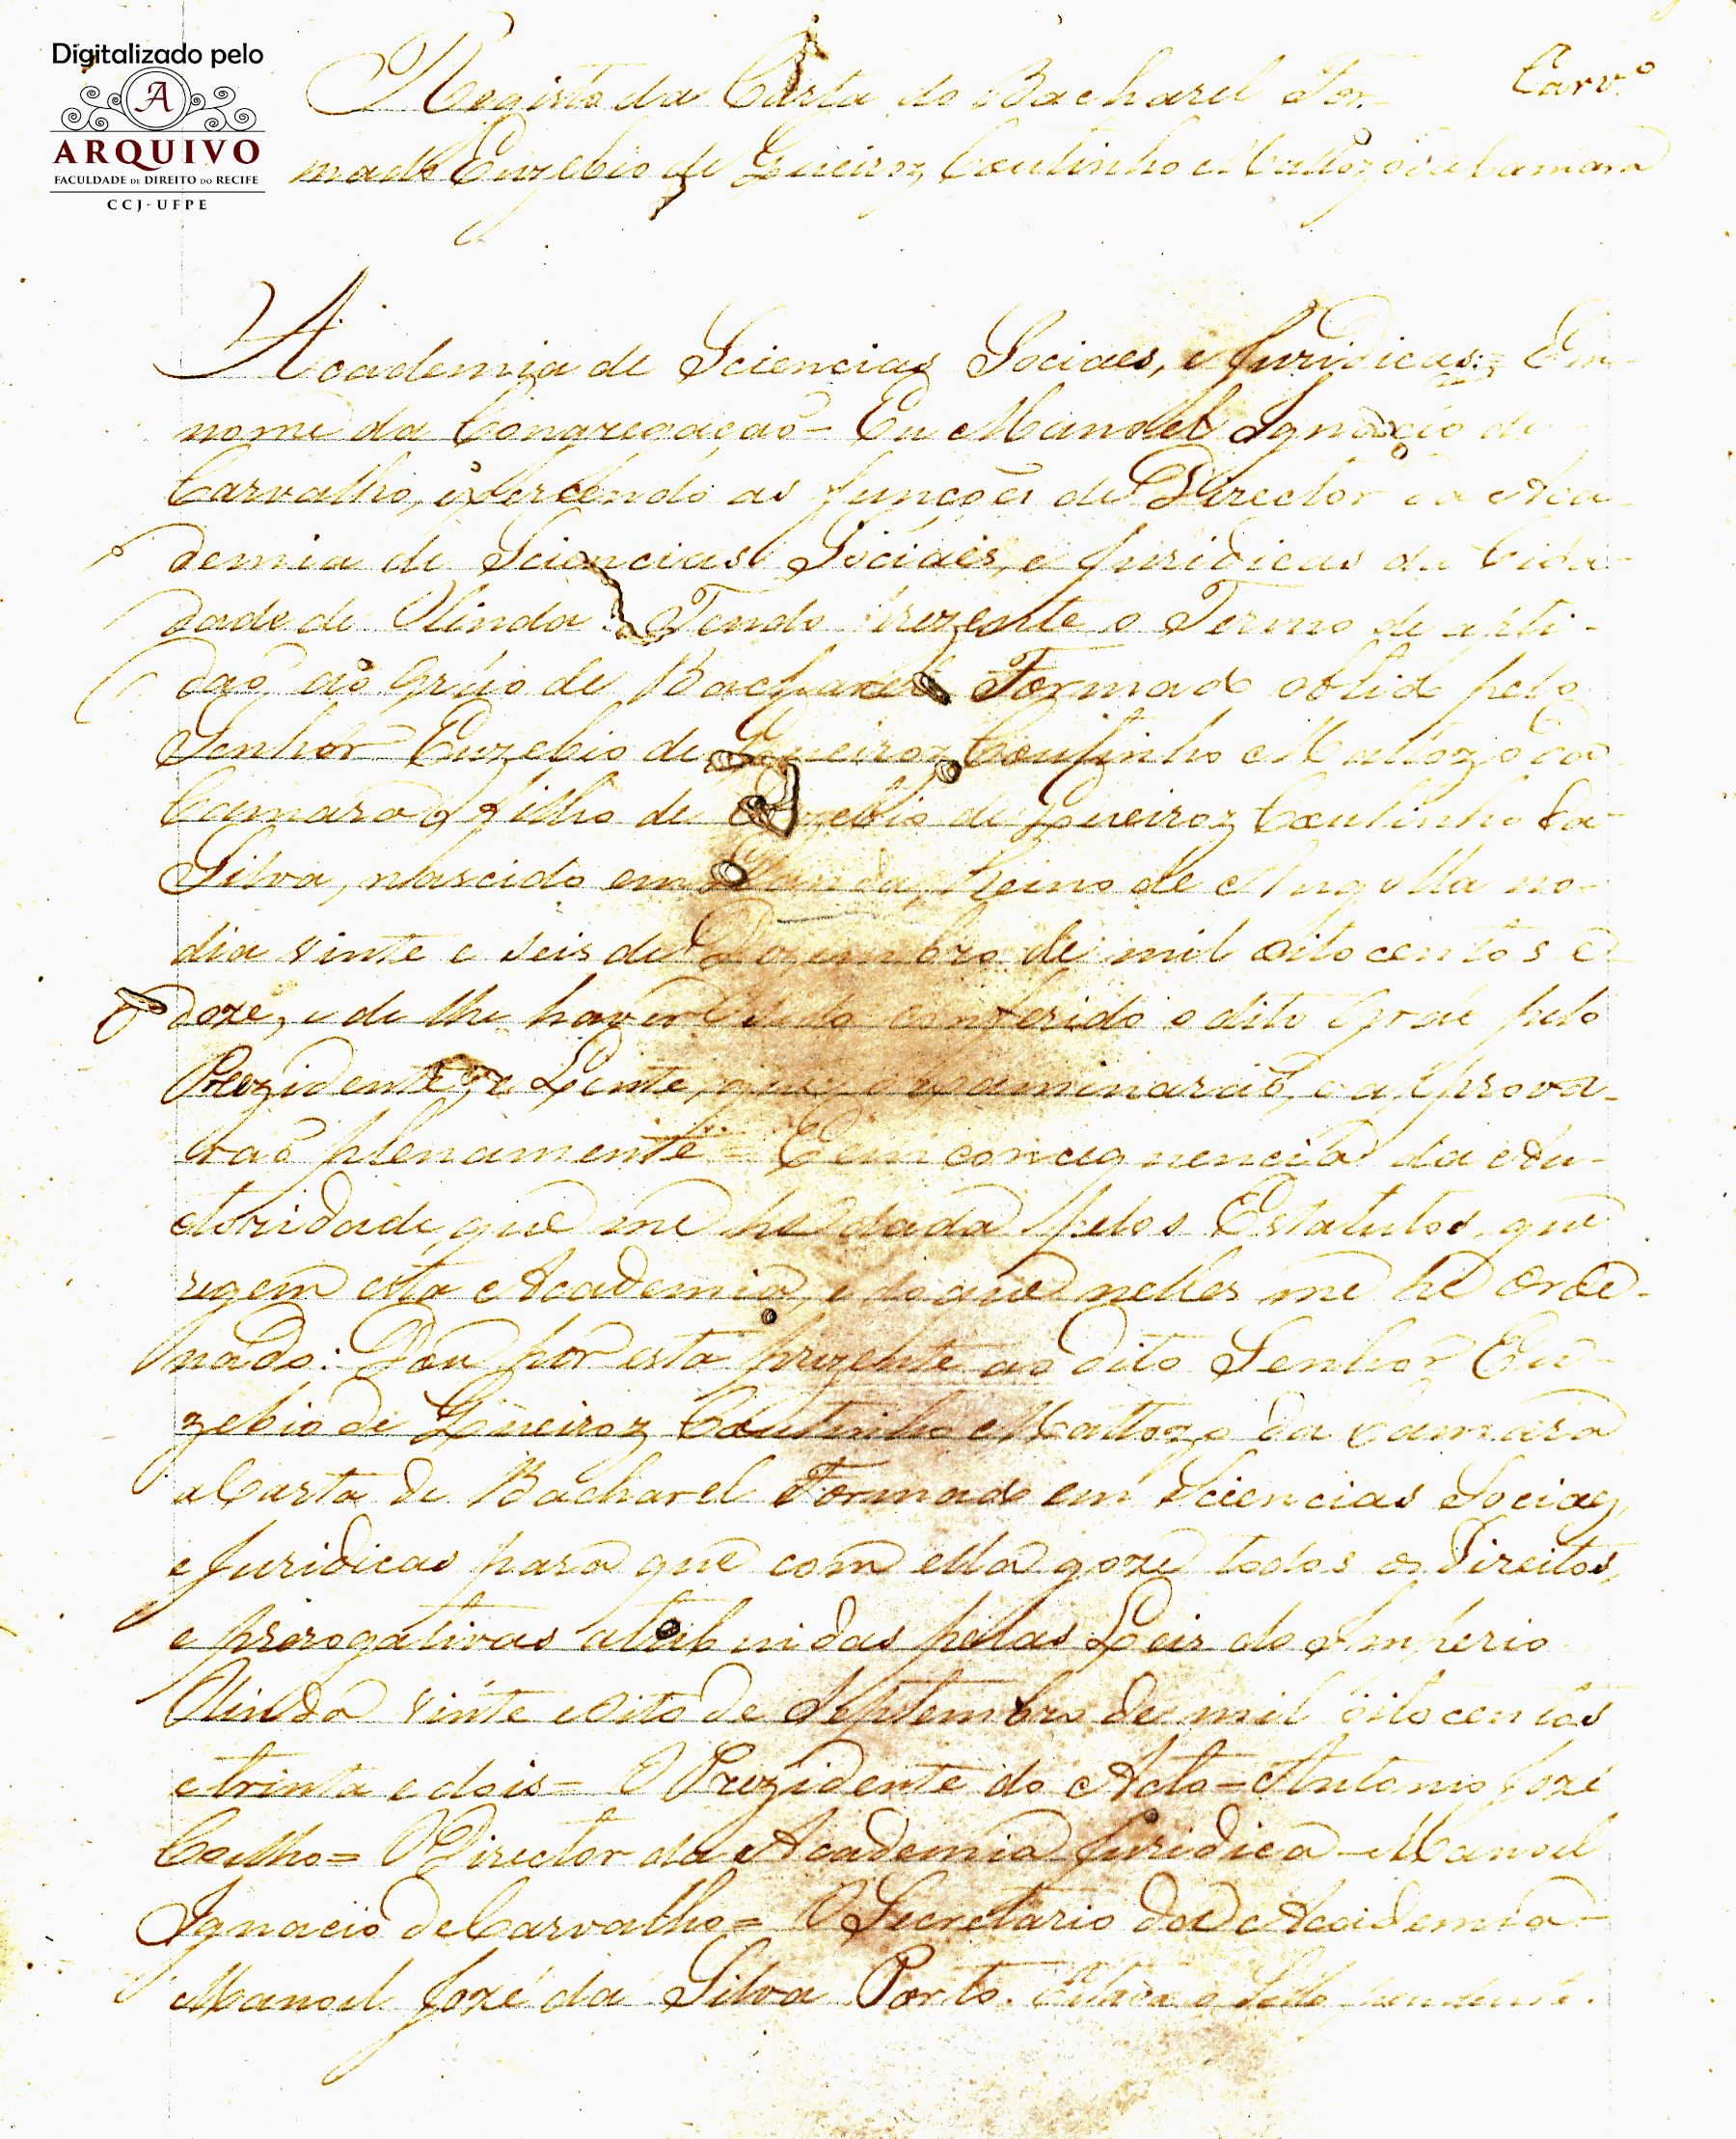 Digitalizado pelo
A
ARQUIVO
FACULDADE DE DIREITO DO RECIFE
CCJ-UFPE
Carv.º
Registo da Carta do Bacharel For-
mado Euzebio de Queiroz Coutinho Mattozo da Camara
Academia de Sciencias Sociaes, e Juridicas = Em
nome da Congregação = Eu Manoel Ignacio de
Carvalho, exercendo as funcções de Director da Aca-
demia de Sciencias Sociaes, e Juridicas da Cida-
dade de Olinda. Tendo prezente o Termo de apti-
dão ao Gráo de Bacharel Formado obtido pelo
Senhor Euzebio de Queiroz Coutinho Mattozo da
Camara filho de Euzebio de Queiroz Coutinho da
Silva, nascido em Reino de Angolla no
dia vinte e seis de Dezembro de mil oito centos e
doze, e de lhe haver sido conferido o dito Gráo pelo
Prezidente, e Lente, que o examinarão, e approva-
vão plenamente = E em conseguencia da Au-
ctoridade que me he dada pelos Estatutos, que
regem esta Academia, e do que nelles me he orde-
nado: Dou por esta prezente ao dito Senhor Eu-
zebio de Queiroz Coutinho Mattozo da Camara
a Carta de Bacharel Formado em Sciencias Sociaes,
e Juridicas para que com ella goze todos os Direitos,
e prerogativas atribuidas pelas Leis do Imperio
Olinda vinte e oito de Septembro de mil oito centos
e trinta e dois = O Prezidente do Acto = Antonio Jozé
Coelho = O Director da Academia Juridica = Manoel
Ignacio de Carvalho = O Secretario da Academia =
Manoel Jozé da Silva Porto. Estava o Sello pendente.